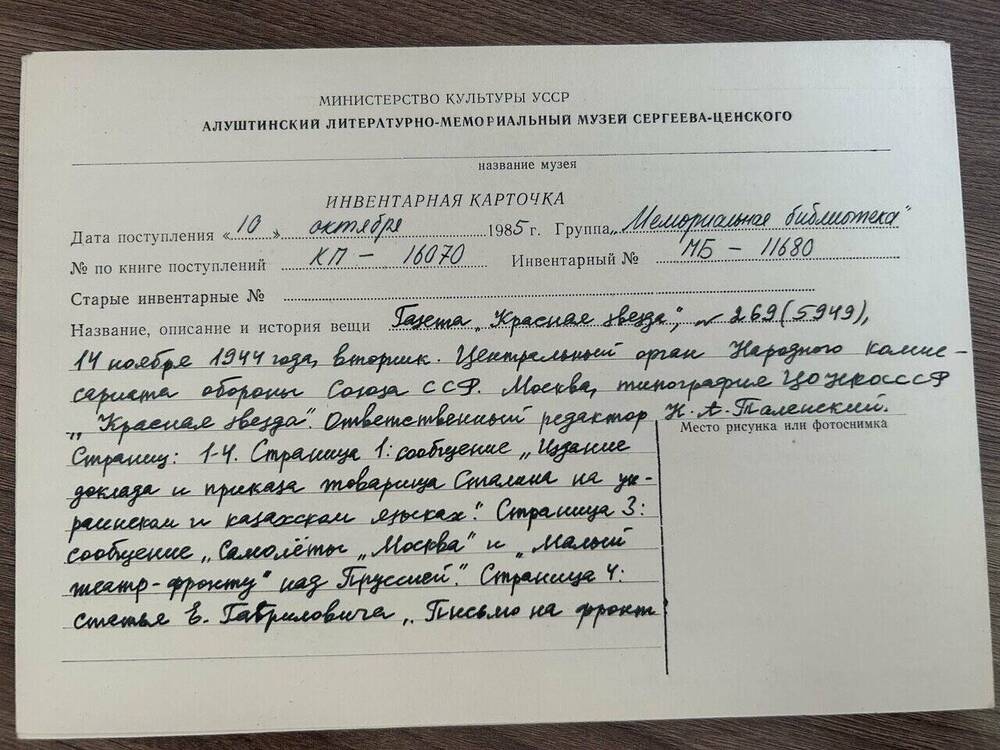 МИНИСТЕРСТВО КУЛЬТУРЫ УССР
АЛУШТИНСКИЙ ЛИТЕРАТУРНО-МЕМОРИАЛЬНЫЙ МУЗЕЙ СЕРГЕЕВА-ЦЕНСКОГО
название музея
ИНВЕНТАРНАЯ КАРТОЧКА
Дата поступления «10» октября 1985 г. Группа „Мемориальная библиотека"
№ по книге поступлений КП – 16070 Инвентарный № МБ – 11680
Старые инвентарные №
Название, описание и история вещи Газета „Красная звезда", № 269 (5949),
14 ноября 1944 года, вторник. Центральный орган Народного комис-
сариата обороны Союза ССР. Москва, типография
„Красная звезда". Ответственный редактор Н. А. Таленский.
Место рисунка или фотоснимка
Страниц: 1-4. Страница 1: сообщение „Издание
доклада и приказа товарища Сталина на ук-
раинском и казахском языках." Страница 3:
сообщение „Самолёты „Москва" и „Малый
театр-фронту" над Пруссией." Страница 4:
статья Е. Габриловича „Письмо на фронт